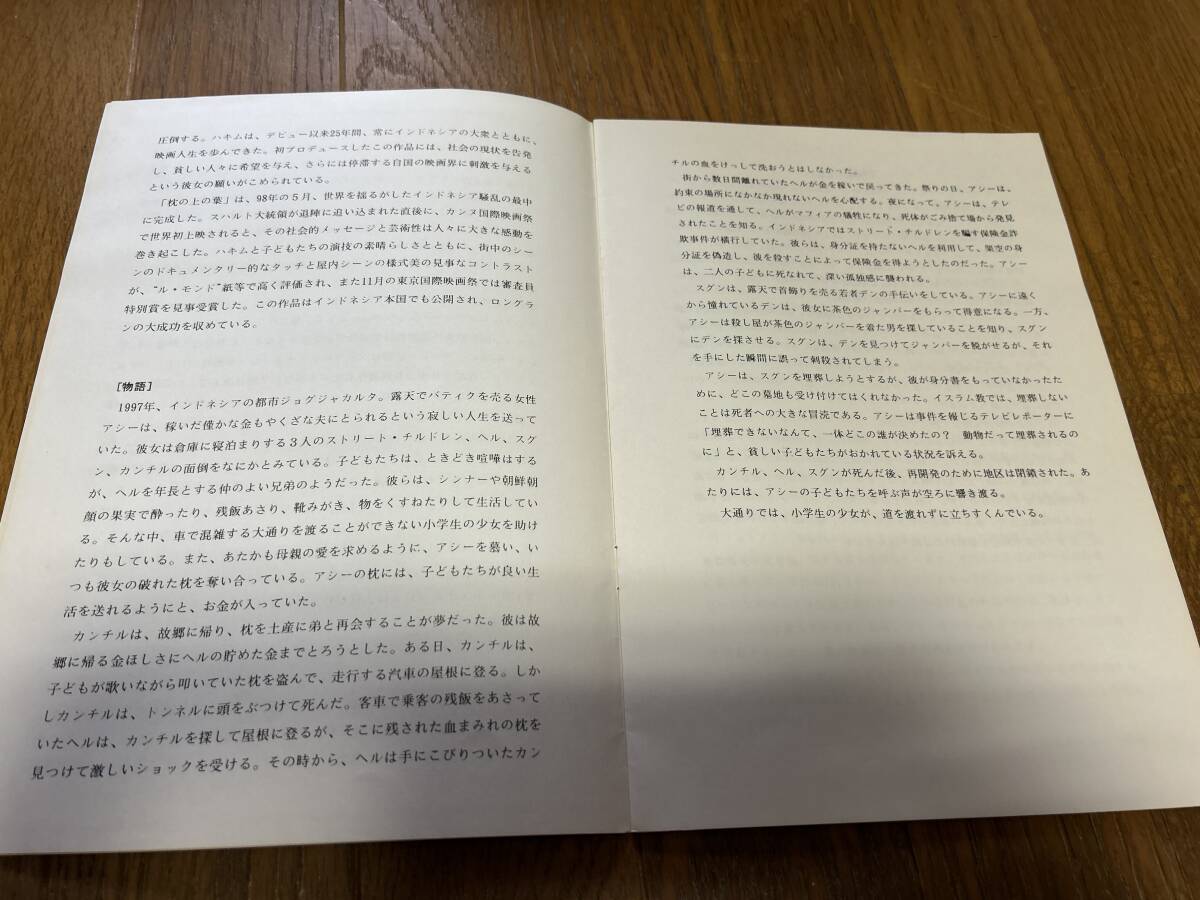 圧倒する。ハキムは、デビュー以来25年間、常にインドネシアの大衆とともに、
映画人生を歩んできた。初プロデュースしたこの作品には、社会の現状を告発
し、貧しい人々に希望を与え、さらには停滞する自国の映画界に刺激を与える
という彼女の願いがこめられている。
「枕の上の葉」は、98年の5月、世界を揺るがしたインドネシア騒乱の最中
に完成した。スハルト大統領が退陣に追い込まれた直後に、カンヌ国際映画祭
で世界初上映されると、その社会的メッセージと芸術性は人々に大きな感動を
巻き起こした。ハキムと子どもたちの演技の素晴らしさとともに、街中のシー
ンのドキュメンタリー的なタッチと屋内シーンの様式美の見事なコントラスト
が、"ル・モンド"紙等で高く評価され、また11月の東京国際映画祭では審査員
特別賞を見事受賞した。この作品はインドネシア本国でも公開され、ロングラ
ンの大成功を収めている。
［物語］
1997年、インドネシアの都市ジョグジャカルタ。露天でバティクを売る女性
アシーは、稼いだ僅かな金もやくざな夫にとられるという寂しい人生を送って
いた。彼女は倉庫に寝泊まりする3人のストリート・チルドレン、ヘル、スグ
ン、カンチルの面倒をなにかとみている。子どもたちは、ときどき喧嘩はする
が、ヘルを年長とする仲のよい兄弟のようだった。彼らは、シンナーや朝鮮朝
顔の果実で酔ったり、残飯あさり、靴みがき、物をくすねたりして生活してい
る。そんな中、車で混雑する大通りを渡ることができない小学生の少女を助け
たりもしている。また、あたかも母親の愛を求めるように、アシーを慕い、い
つも彼女の破れた枕を奪い合っている。アシーの枕には、子どもたちが良い生
活を送れるようにと、お金が入っていた。
カンチルは、故郷に帰り、枕を土産に弟と再会することが夢だった。彼は故
郷に帰る金ほしさにヘルの貯めた金までとろうとした。ある日、カンチルは、
子どもが歌いながら叩いていた枕を盗んで、走行する汽車の屋根に登る。しか
しカンチルは、トンネルに頭をぶつけて死んだ。客車で乗客の残飯をあさって
いたヘルは、カンチルを探して屋根に登るが、そこに残された血まみれの枕を
見つけて激しいショックを受ける。その時から、ヘルは手にこびりついたカン
チルの血をけっして洗おうとはしなかった。
街から数日間離れていたヘルが金を稼いで戻ってきた。祭りの日。アシーは、
約束の場所になかなか現れないヘルを心配する。夜になって。アシーは、テレ
ビの報道を通して、ヘルがマフィアの犠牲になり、死体がごみ捨て場から発見
されたことを知る。インドネシアではストリート・チルドレンを騙す保険金詐
欺事件が横行していた。彼らは、身分証を持たないヘルを利用して、架空の身
分証を偽造し、彼を殺すことによって保険金を得ようとしたのだった。アシー
は、二人の子どもに死なれて、深い孤独感に襲われる。
スグンは、露天で首飾りを売る若者デンの手伝いをしている。アシーに遠く
から憧れているデンは、彼女に茶色のジャンパーをもらって得意になる。一方、
アシーは殺し屋が茶色のジャンパーを着た男を探していることを知り、スグン
にデンを探させる。スグンは、デンを見つけてジャンパーを脱がせるが、それ
を手にした瞬間に誤って刺殺されてしまう。
アシーは、スグンを埋葬しようとするが、彼が身分書をもっていなかったた
めに、どこの墓地も受け付けてはくれなかった。イスラム教では、埋葬しない
ことは死者への大きな冒涜である。アシーは事件を報じるテレビレポーターに
「埋葬できないなんて、一体どこの誰が決めたの？ 動物だって埋葬されるの
に」と、貧しい子どもたちがおかれている状況を訴える。
カンチル、ヘル、スグンが死んだ後、再開発のために地区は閉鎖された。あ
たりには、アシーの子どもたちを呼ぶ声が空ろに響き渡る。
大通りでは、小学生の少女が、道を渡れずに立ちすくんでいる。